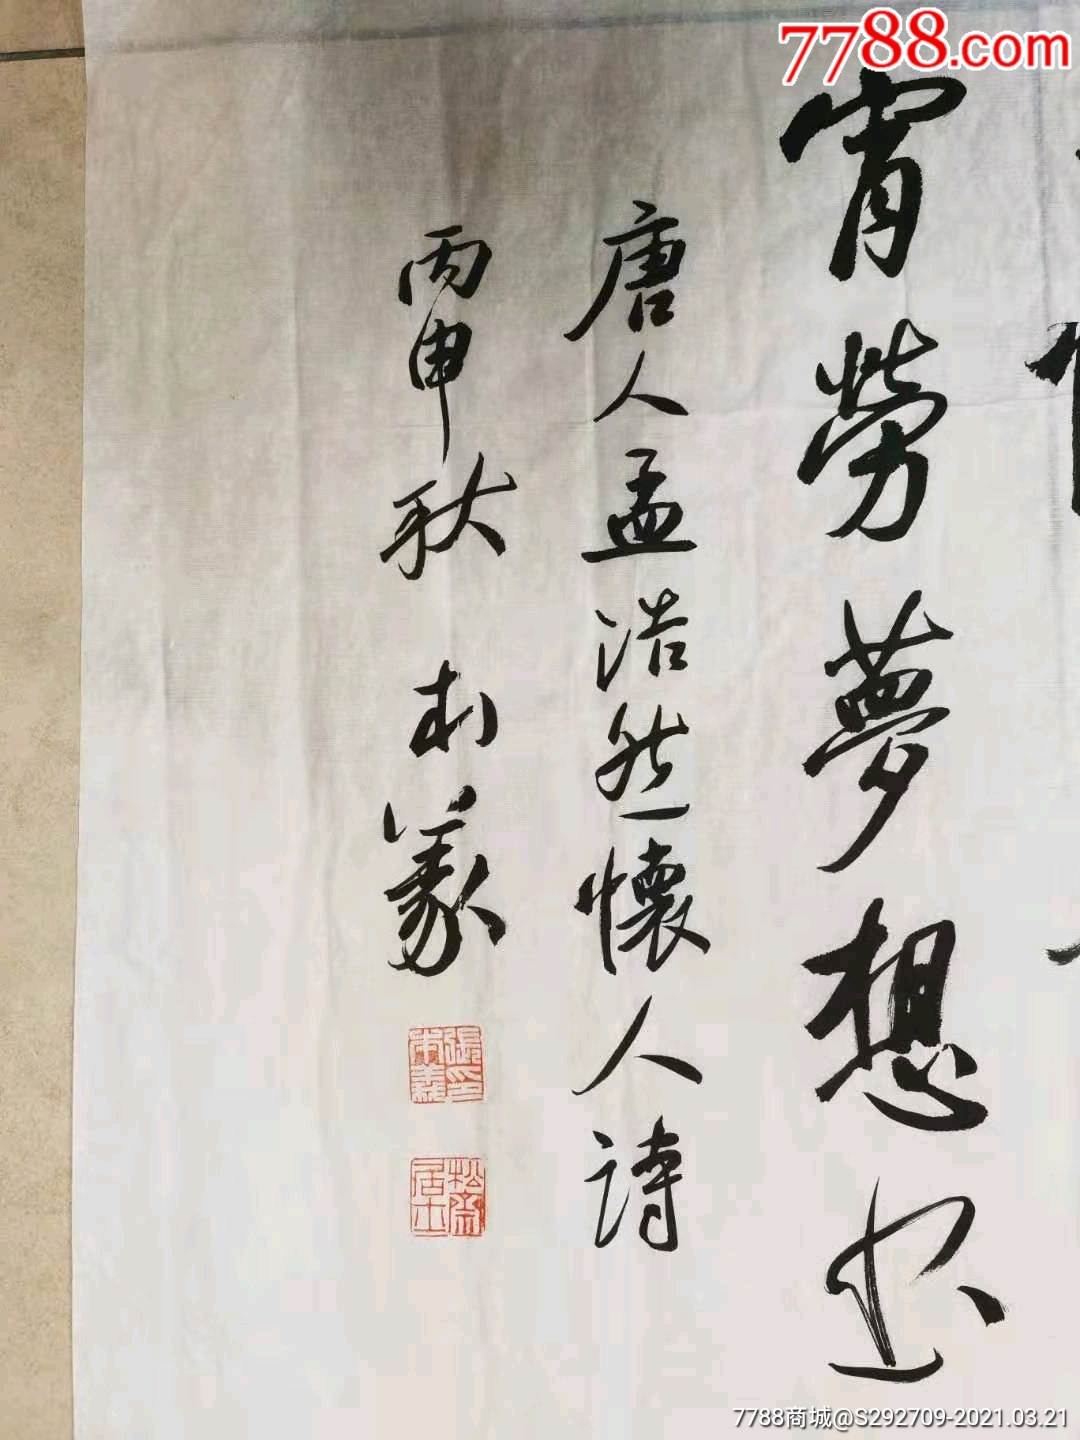 7788.com
宵勞夢想
唐人孟浩然懷人詩
丙申秋 義
張印義
松齋居士
7788商城@S292709-2021.03.21